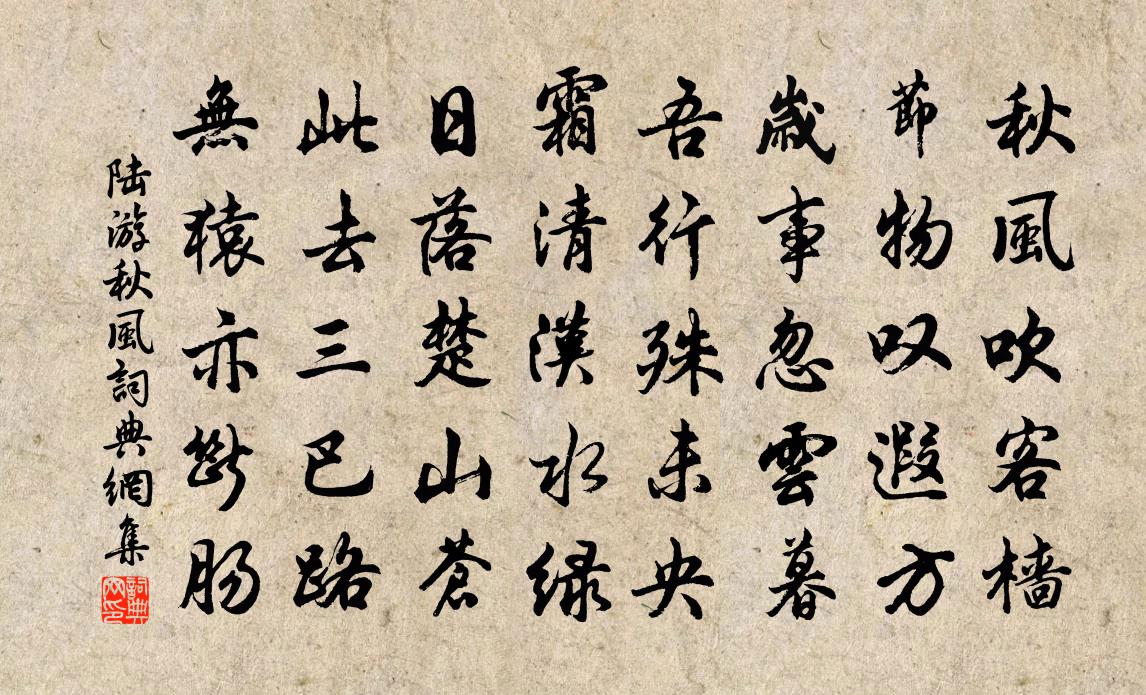 秋風吹客檣
節物叹遐方
歲事忽雲暮
吾行殊未央
霜清漢水绿
日落楚山蒼
此去三巴路
無猿亦斷腸
陆游秋風詞典網集
詞典网印